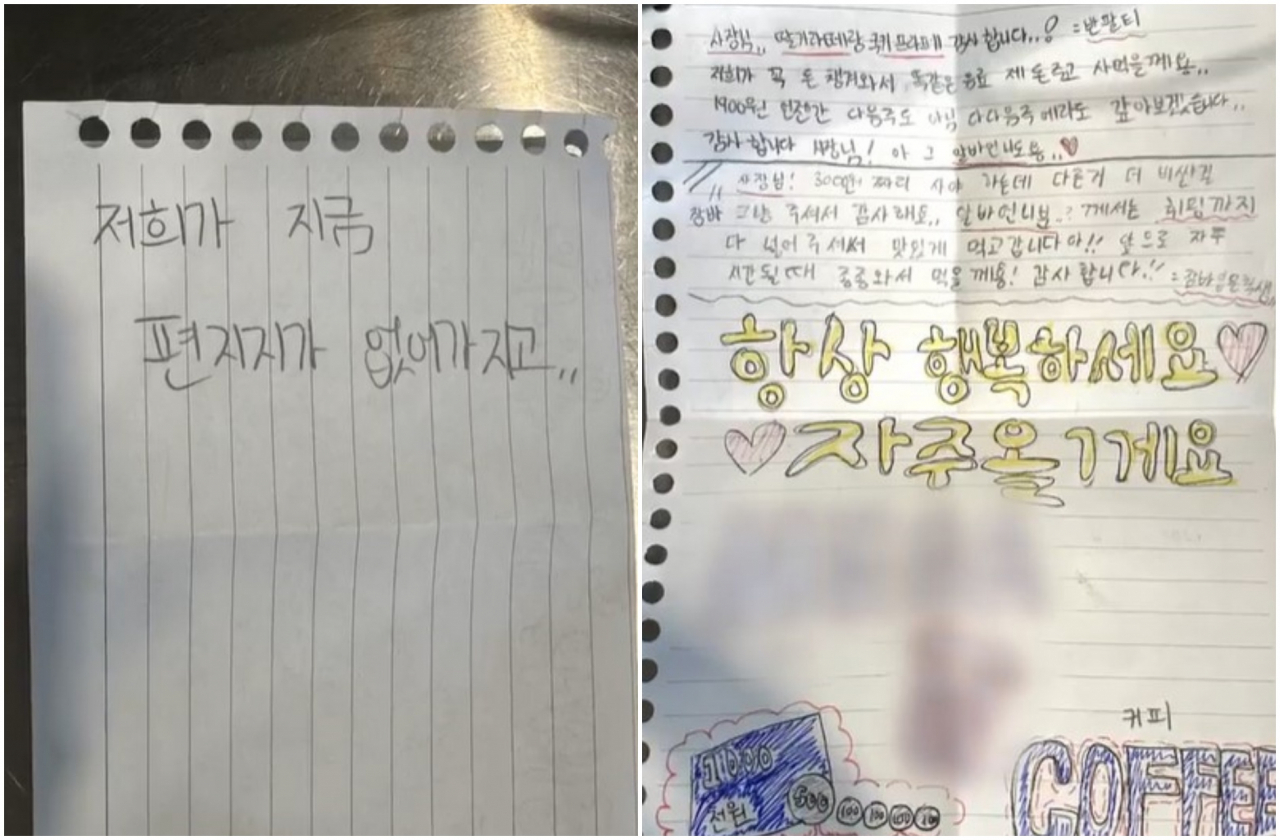 저희가 지금
편지지가 없어가지고..
사장님,, 딸기라떼랑 쿠키프라페 감사합니다..! =반팔티
저희가 꼭 돈 챙겨와서, 똑같은 음료 제 돈주고 사먹을께요..
1900원 언젠간 다음주도 아님 다다음주에라도 갚아보겠습니다..
감사합니다 사장님! 아 그 알바언니도용..♥
사장님! 3000원 짜리 사야 하는데 다른거 더 비싼걸
잠바 그냥 주셔서 감사해요,, 알바언니분..? 께서는 휘핑까지
다 넣어주셔서 맛있게 먹고갑니다아!! 앞으로 자주
시간될때 종종와서 먹을께용! 감사합니다!! =잠바입은학생
항상 행복하세요♡
♡자주올게요
커피
COFFEE
1000
천원
500 100 100 100 100